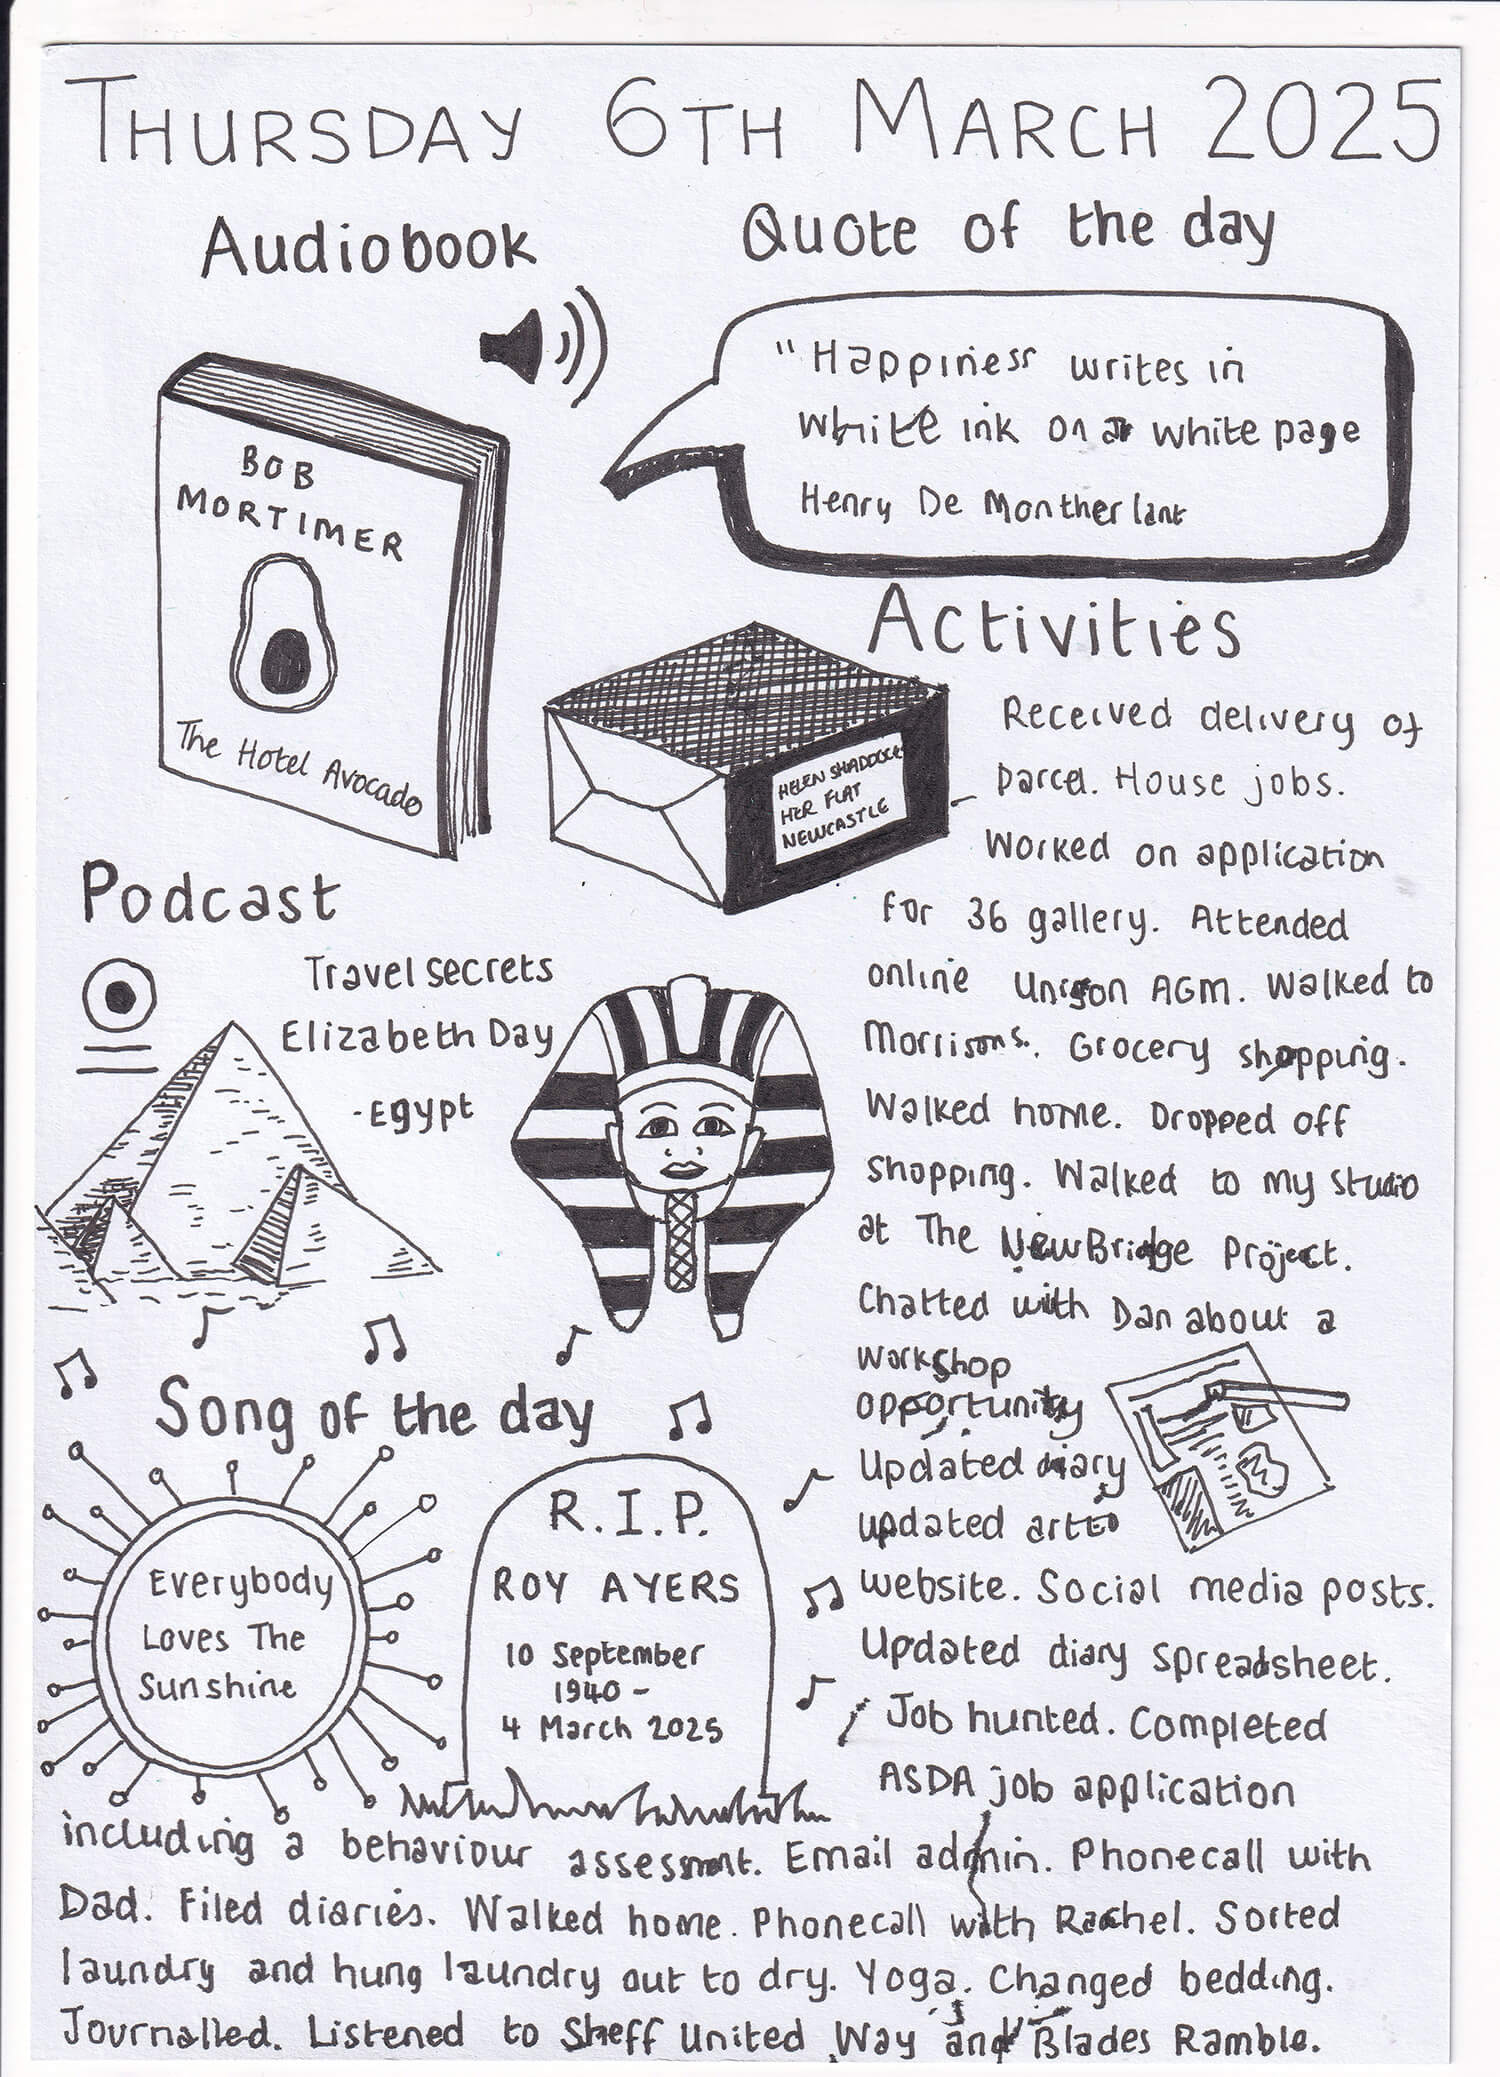 THURSDAY 6TH MARCH 2025
Audiobook
BOB
MORTIMER
The Hotel Avocado
Quote of the day
"Happiness writes in
white ink on a white page
Henry De Montherlant
Activities
HELEN SHADDOCK
HER FLAT
NEWCASTLE
Received delivery of
parcel. House jobs.
Worked on application
for 36 gallery. Attended
online Unison AGM. Walked to
Morrisons. Grocery shopping.
Walked home. Dropped off
shopping. Walked to my studio
at The NewBridge Project.
Chatted with Dan about a
workshop
opportunity
Updated diary
updated artto
website. Social media posts.
Updated diary spreadsheet.
Job hunted. Completed
ASDA job application
including a behaviour assessment. Email admin. Phonecall with
Dad. Filed diaries. Walked home. Phonecall with Rachel. Sorted
laundry and hung laundry out to dry. Yoga. Changed bedding.
Journalled. Listened to Sheff United Way and Blades Ramble.
Podcast
Travel Secrets
Elizabeth Day
-Egypt
Song of the day
Everybody
Loves The
Sunshine
R.I.P.
ROY AYERS
10 September
1940 -
4 March 2025